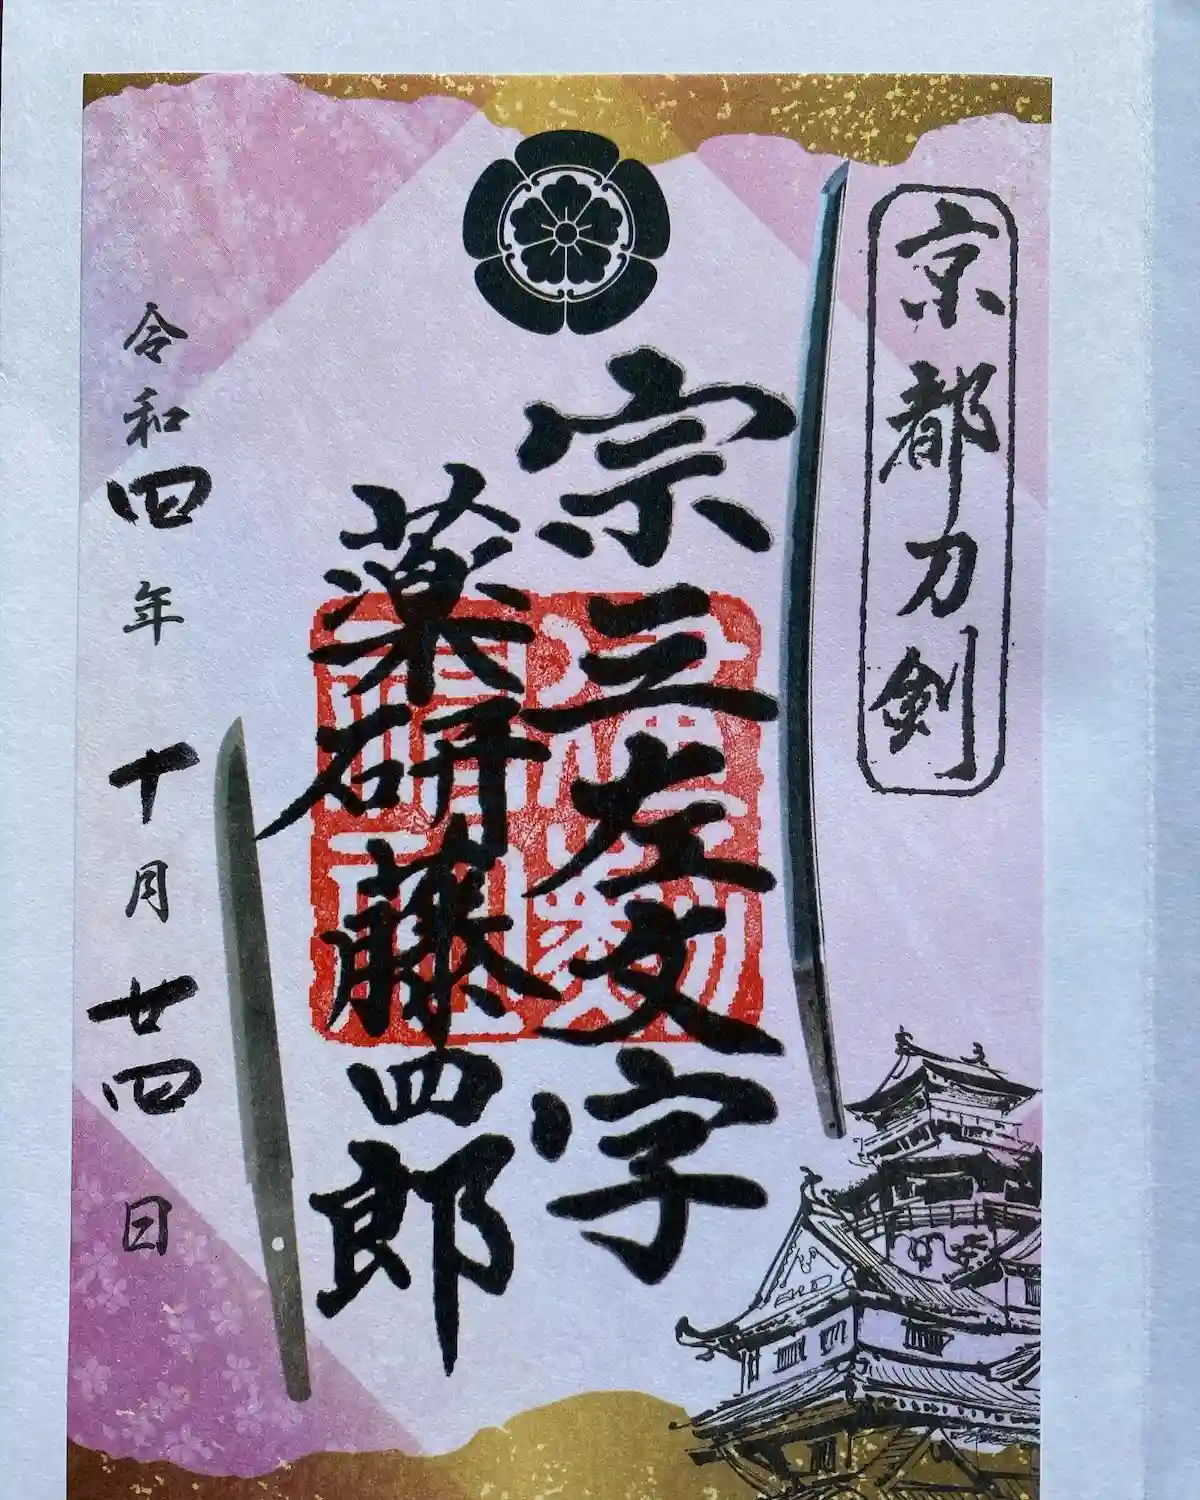 京都刀剣
宗三左文字
薬研藤四郎
令和四年十月廿四日